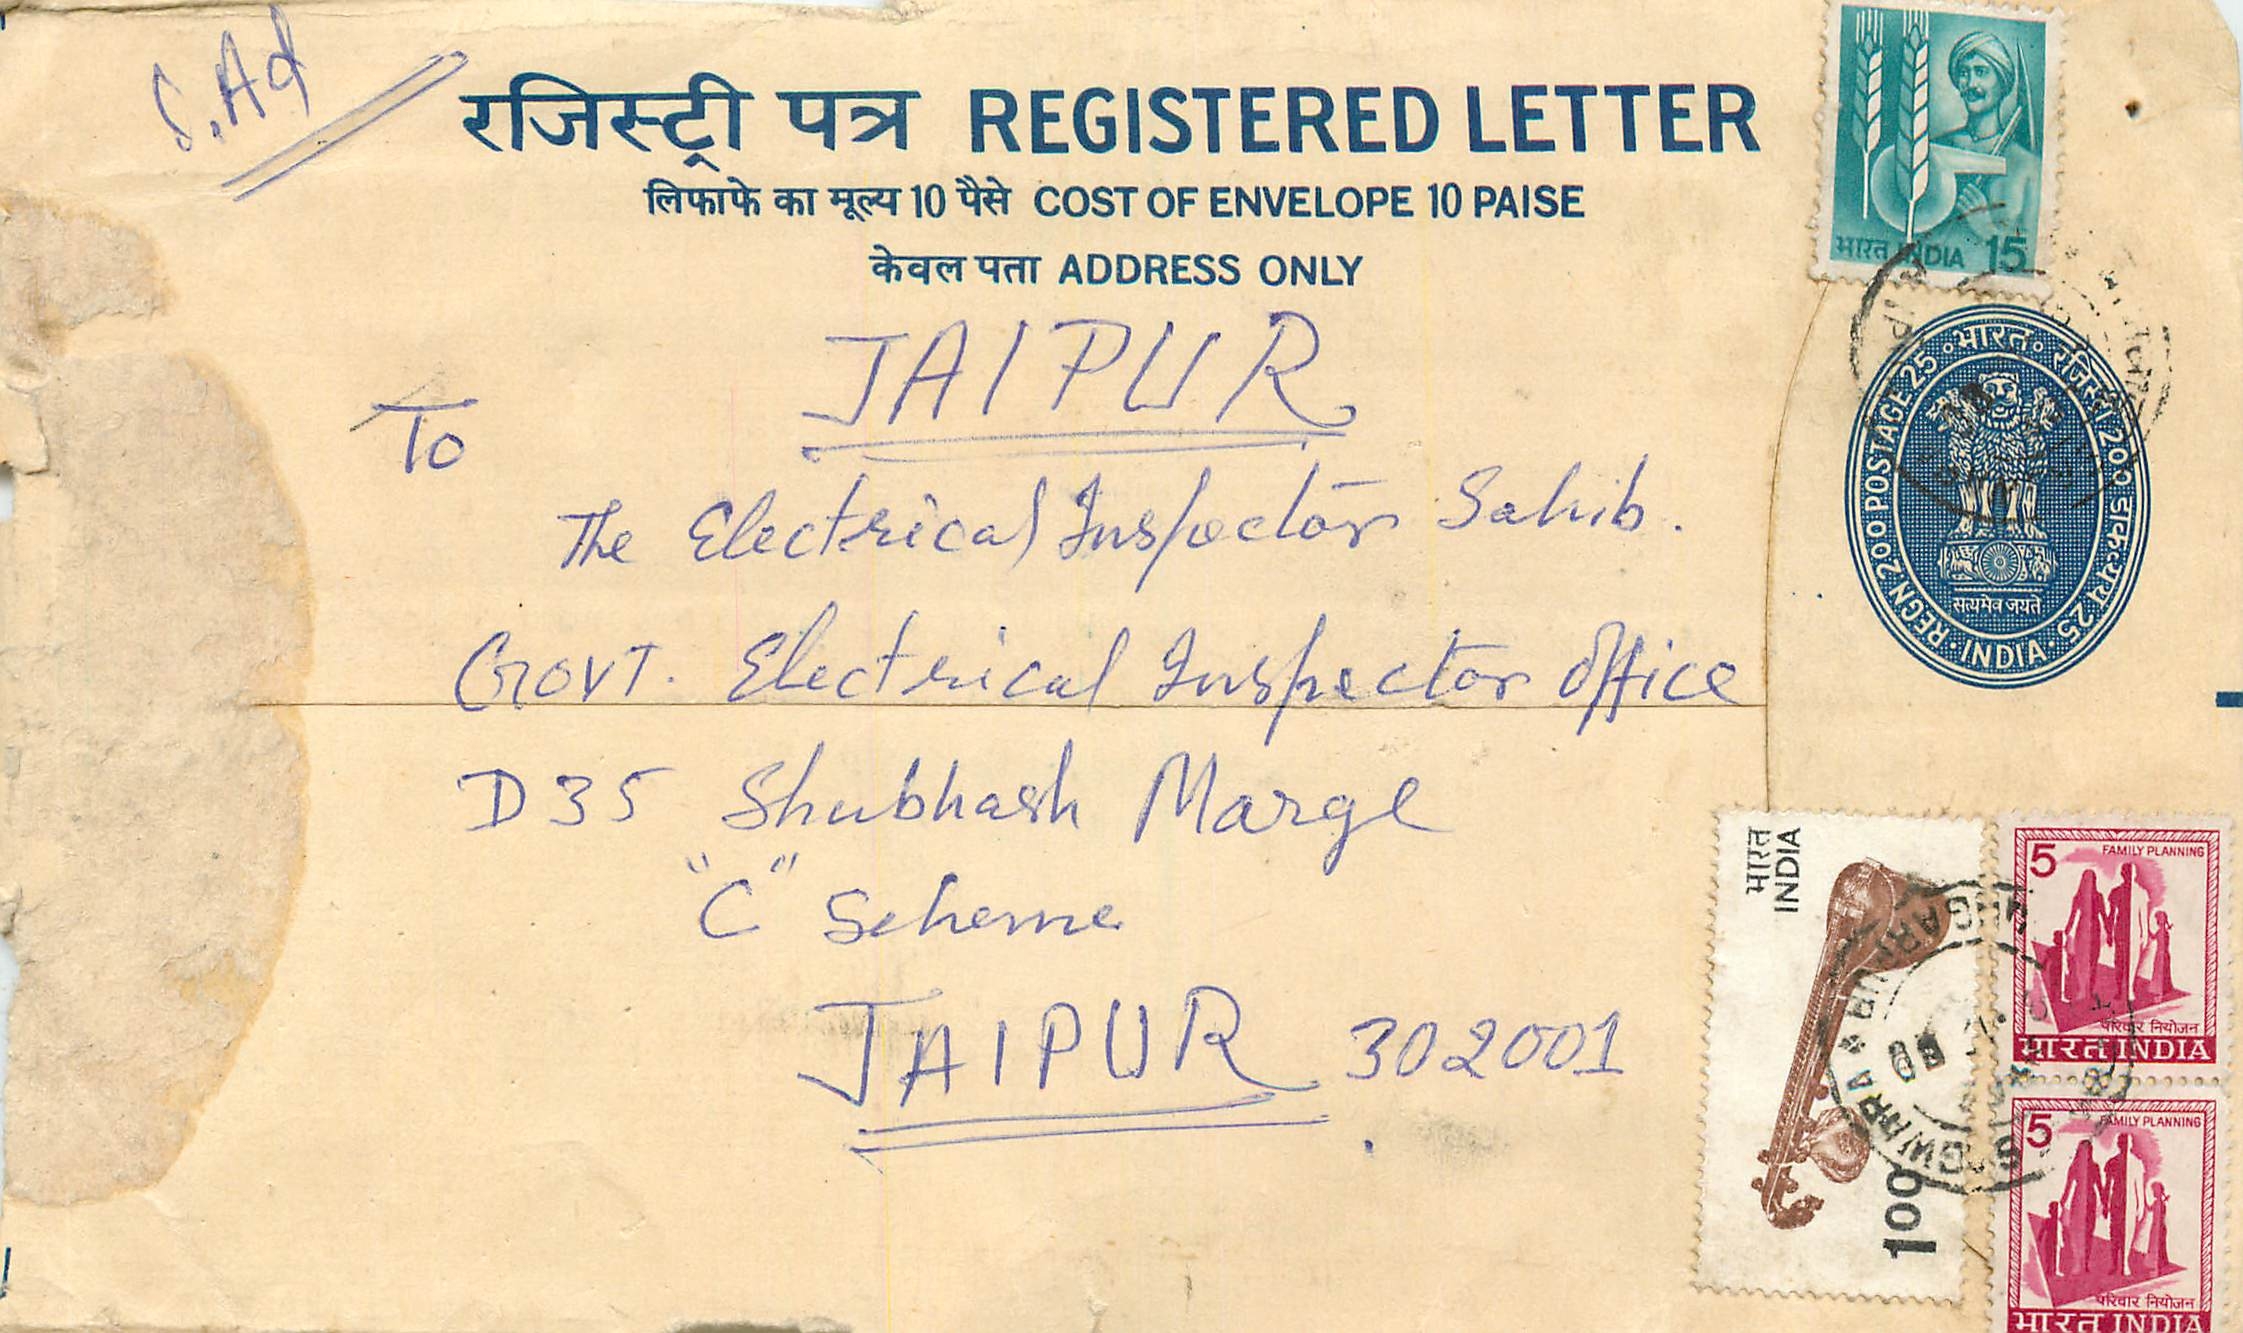 S.Ad
रजिस्ट्री पत्र REGISTERED LETTER
लिफाफे का मूल्य 10 पैसे COST OF ENVELOPE 10 PAISE
केवल पता ADDRESS ONLY
भारत INDIA 15
REGN.200 POSTAGE 25 भारत रजिस्ट्री 200 डाकव्यय 25 INDIA
सत्यमेव जयते
JAIPUR
To
The Electrical Inspector Sahib.
GOVT. Electrical Inspector office
D 35 Shubhash Marge
"C" Scheme
JAIPUR 302001
भारत
INDIA
100
5 FAMILY PLANNING
परिवार नियोजन
भारत INDIA
5 FAMILY PLANNING
परिवार नियोजन
भारत INDIA